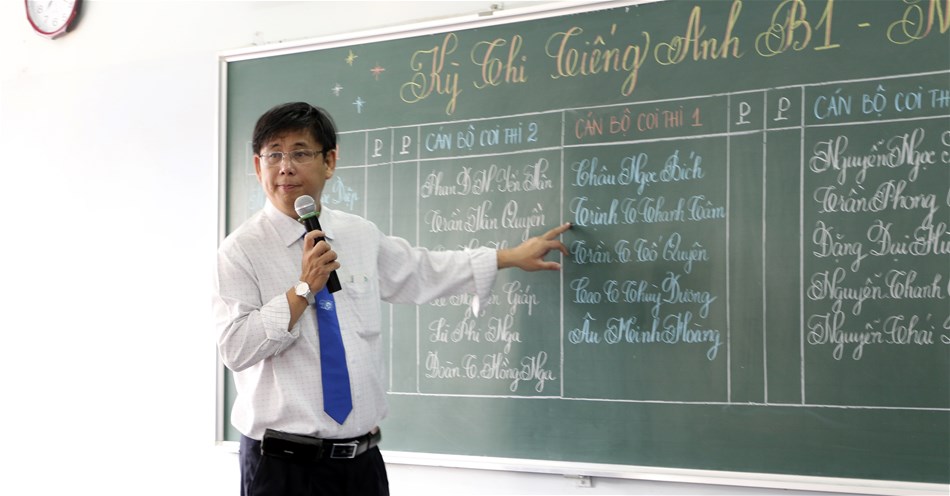 Kỳ Thi Tiếng Anh B1 -
P P CÁN BỘ COI THI 2 CÁN BỘ COI THI 1 P P CÁN BỘ COI
Phan D. M. Yên Châu Ngọc Bích Nguyễn Ngọc
Trần Hân Quyền Trịnh T Thanh Tâm Trần Phong
Trần T Tố Quyên Đặng Duy
Giáp Cao T Thuỳ Dương Nguyễn Thanh
Phi Nga Âu Minh Hoàng Nguyễn Thái
Đoàn T. Hồng Nga